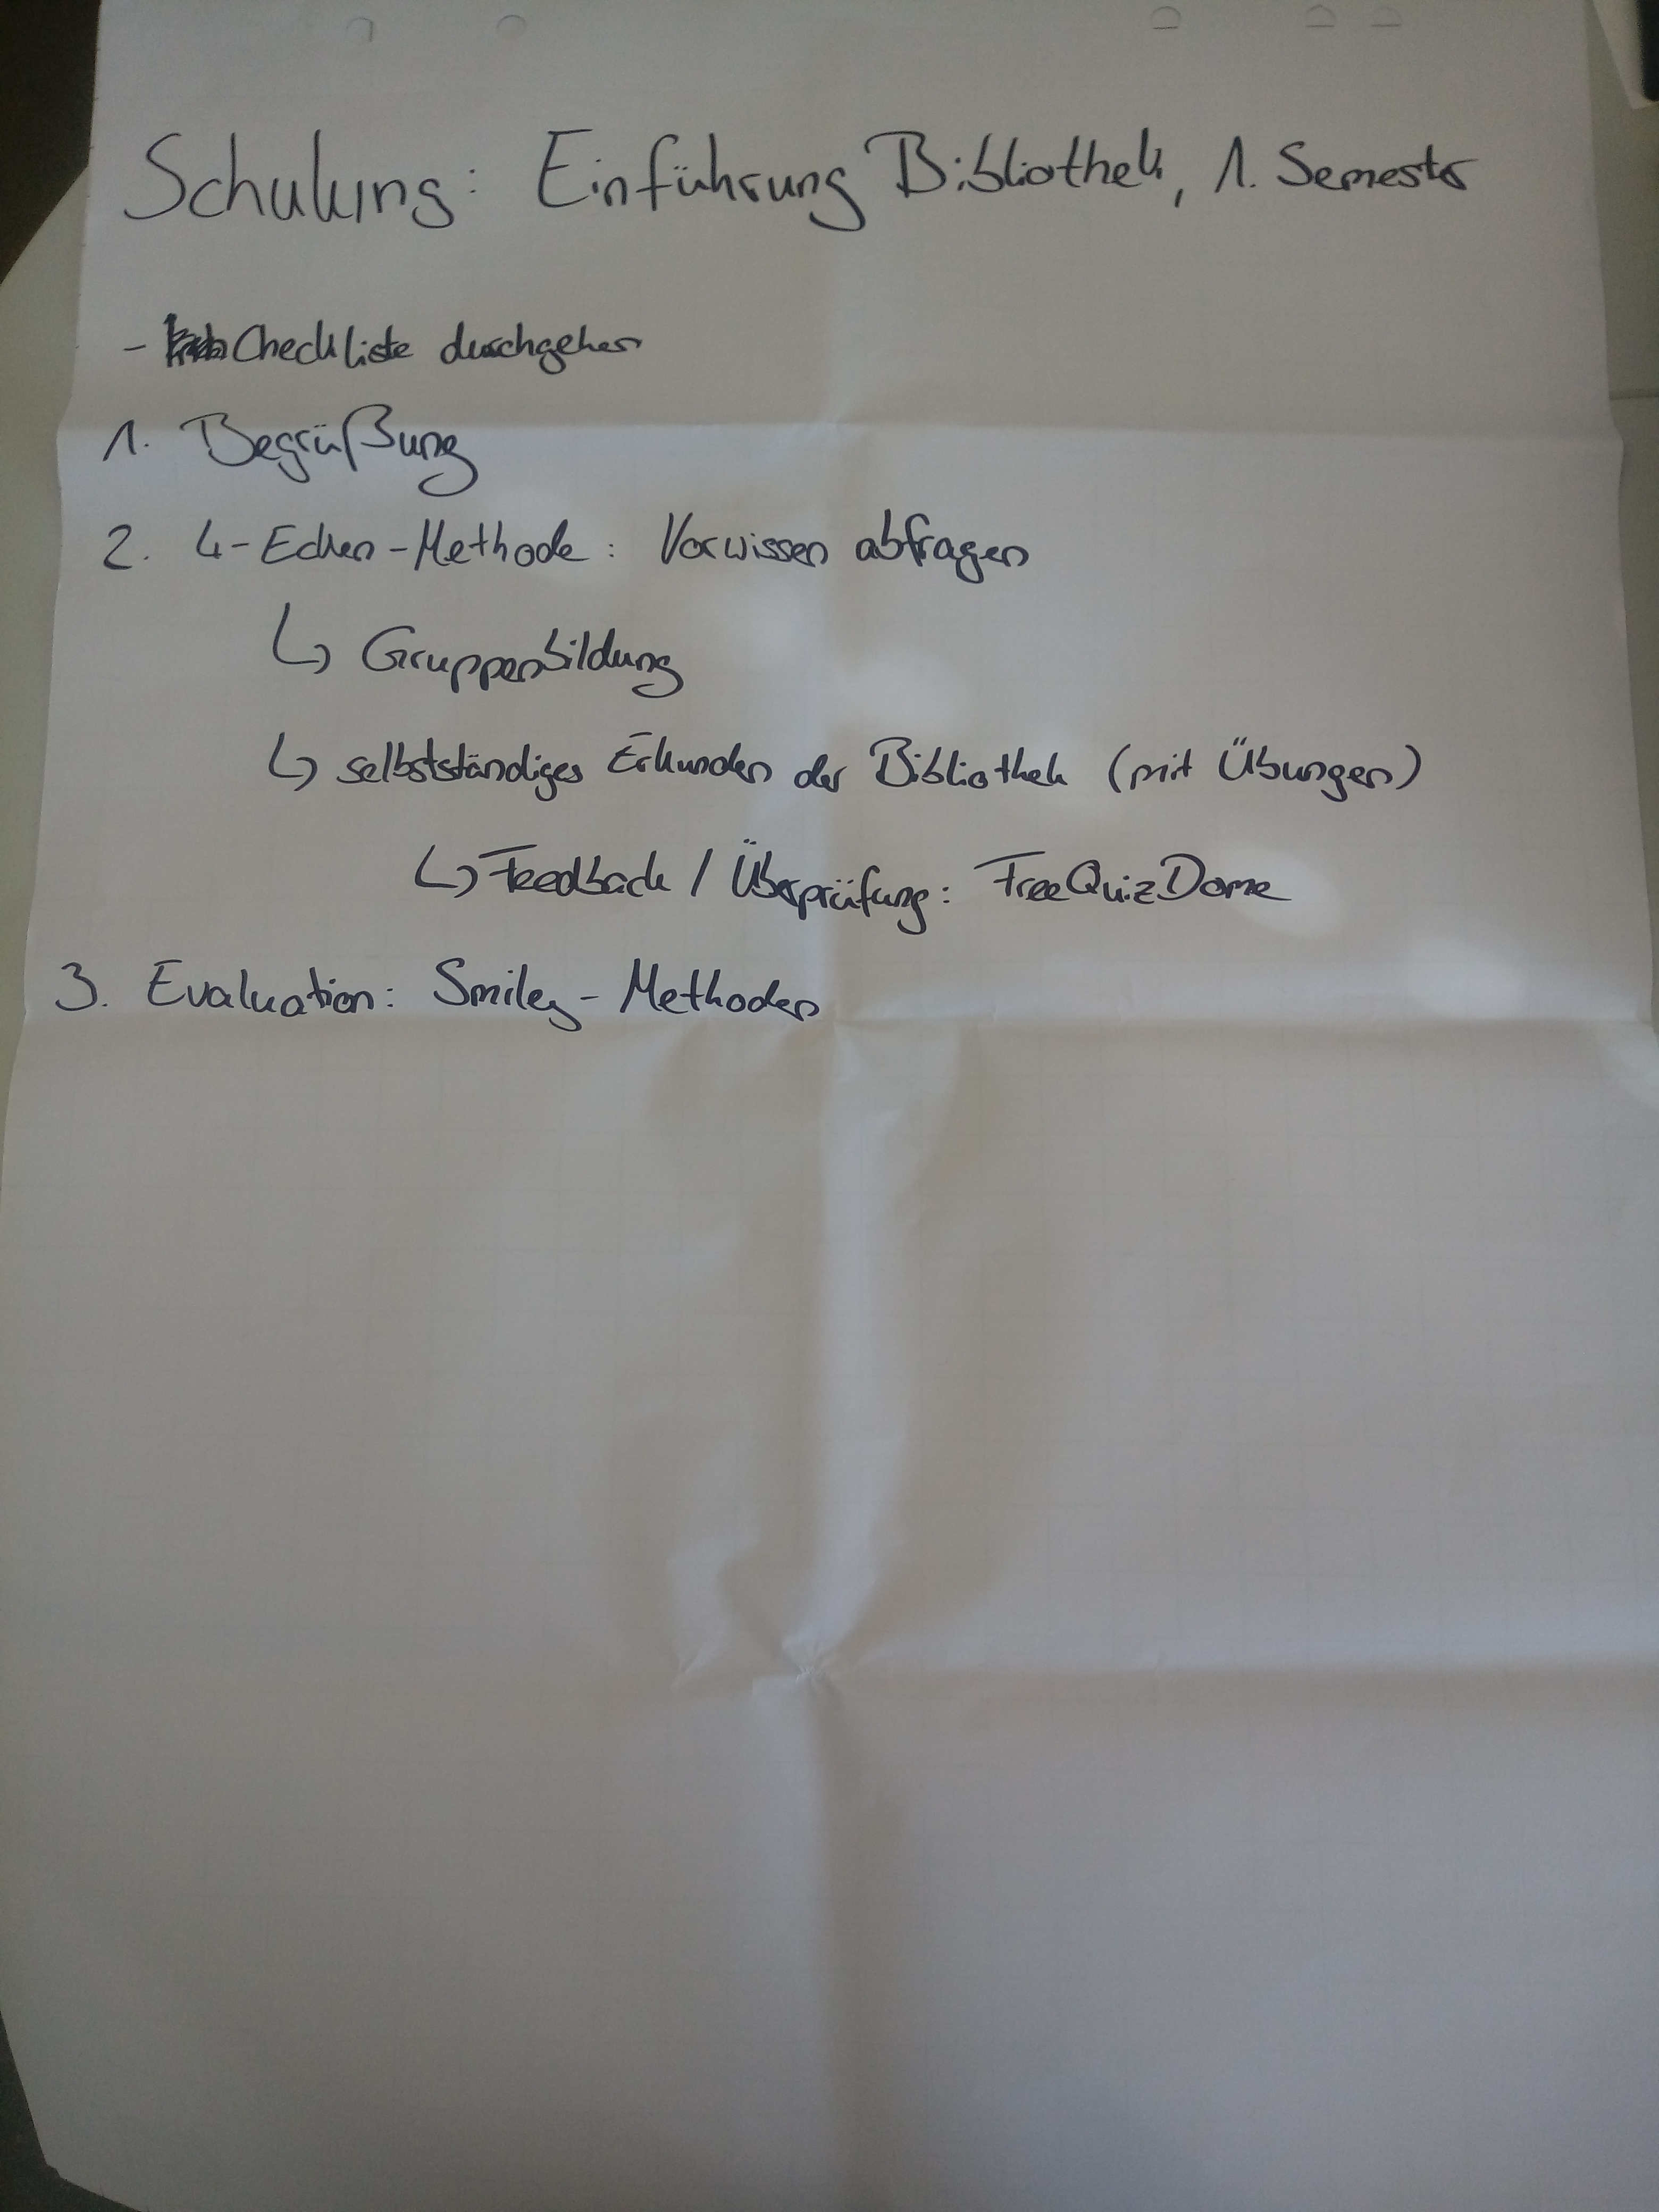 Schulung: Einführung Bibliothek, 1. Semester
- Checkliste durchgehen
1. Begrüßung
2. 4-Ecken-Methode: Vorwissen abfragen
↳ Gruppenbildung
↳ selbstständiges Erkunden der Bibliothek (mit Übungen)
↳ Feedback / Überprüfung: FreeQuizDome
3. Evaluation: Smiley-Methoden